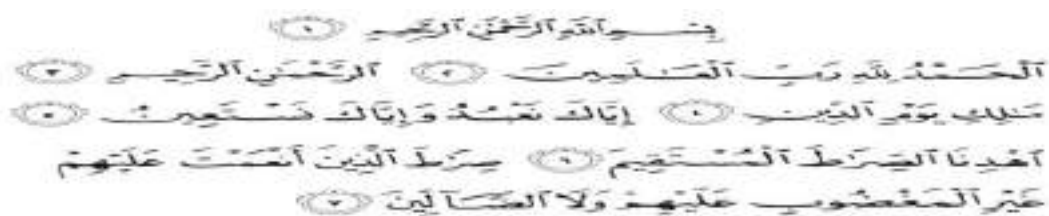 بِسْمِ ٱللَّهِ ٱلرَّحْمَٰنِ ٱلرَّحِيمِ ١
ٱلْحَمْدُ لِلَّهِ رَبِّ ٱلْعَٰلَمِينَ ٢ ٱلرَّحْمَٰنِ ٱلرَّحِيمِ ٣
مَٰلِكِ يَوْمِ ٱلدِّينِ ٤ إِيَّاكَ نَعْبُدُ وَإِيَّاكَ نَسْتَعِينُ ٥
ٱهْدِنَا ٱلصِّرَٰطَ ٱلْمُسْتَقِيمَ ٦ صِرَٰطَ ٱلَّذِينَ أَنْعَمْتَ عَلَيْهِمْ
غَيْرِ ٱلْمَغْضُوبِ عَلَيْهِمْ وَلَا ٱلضَّآلِّينَ ٧